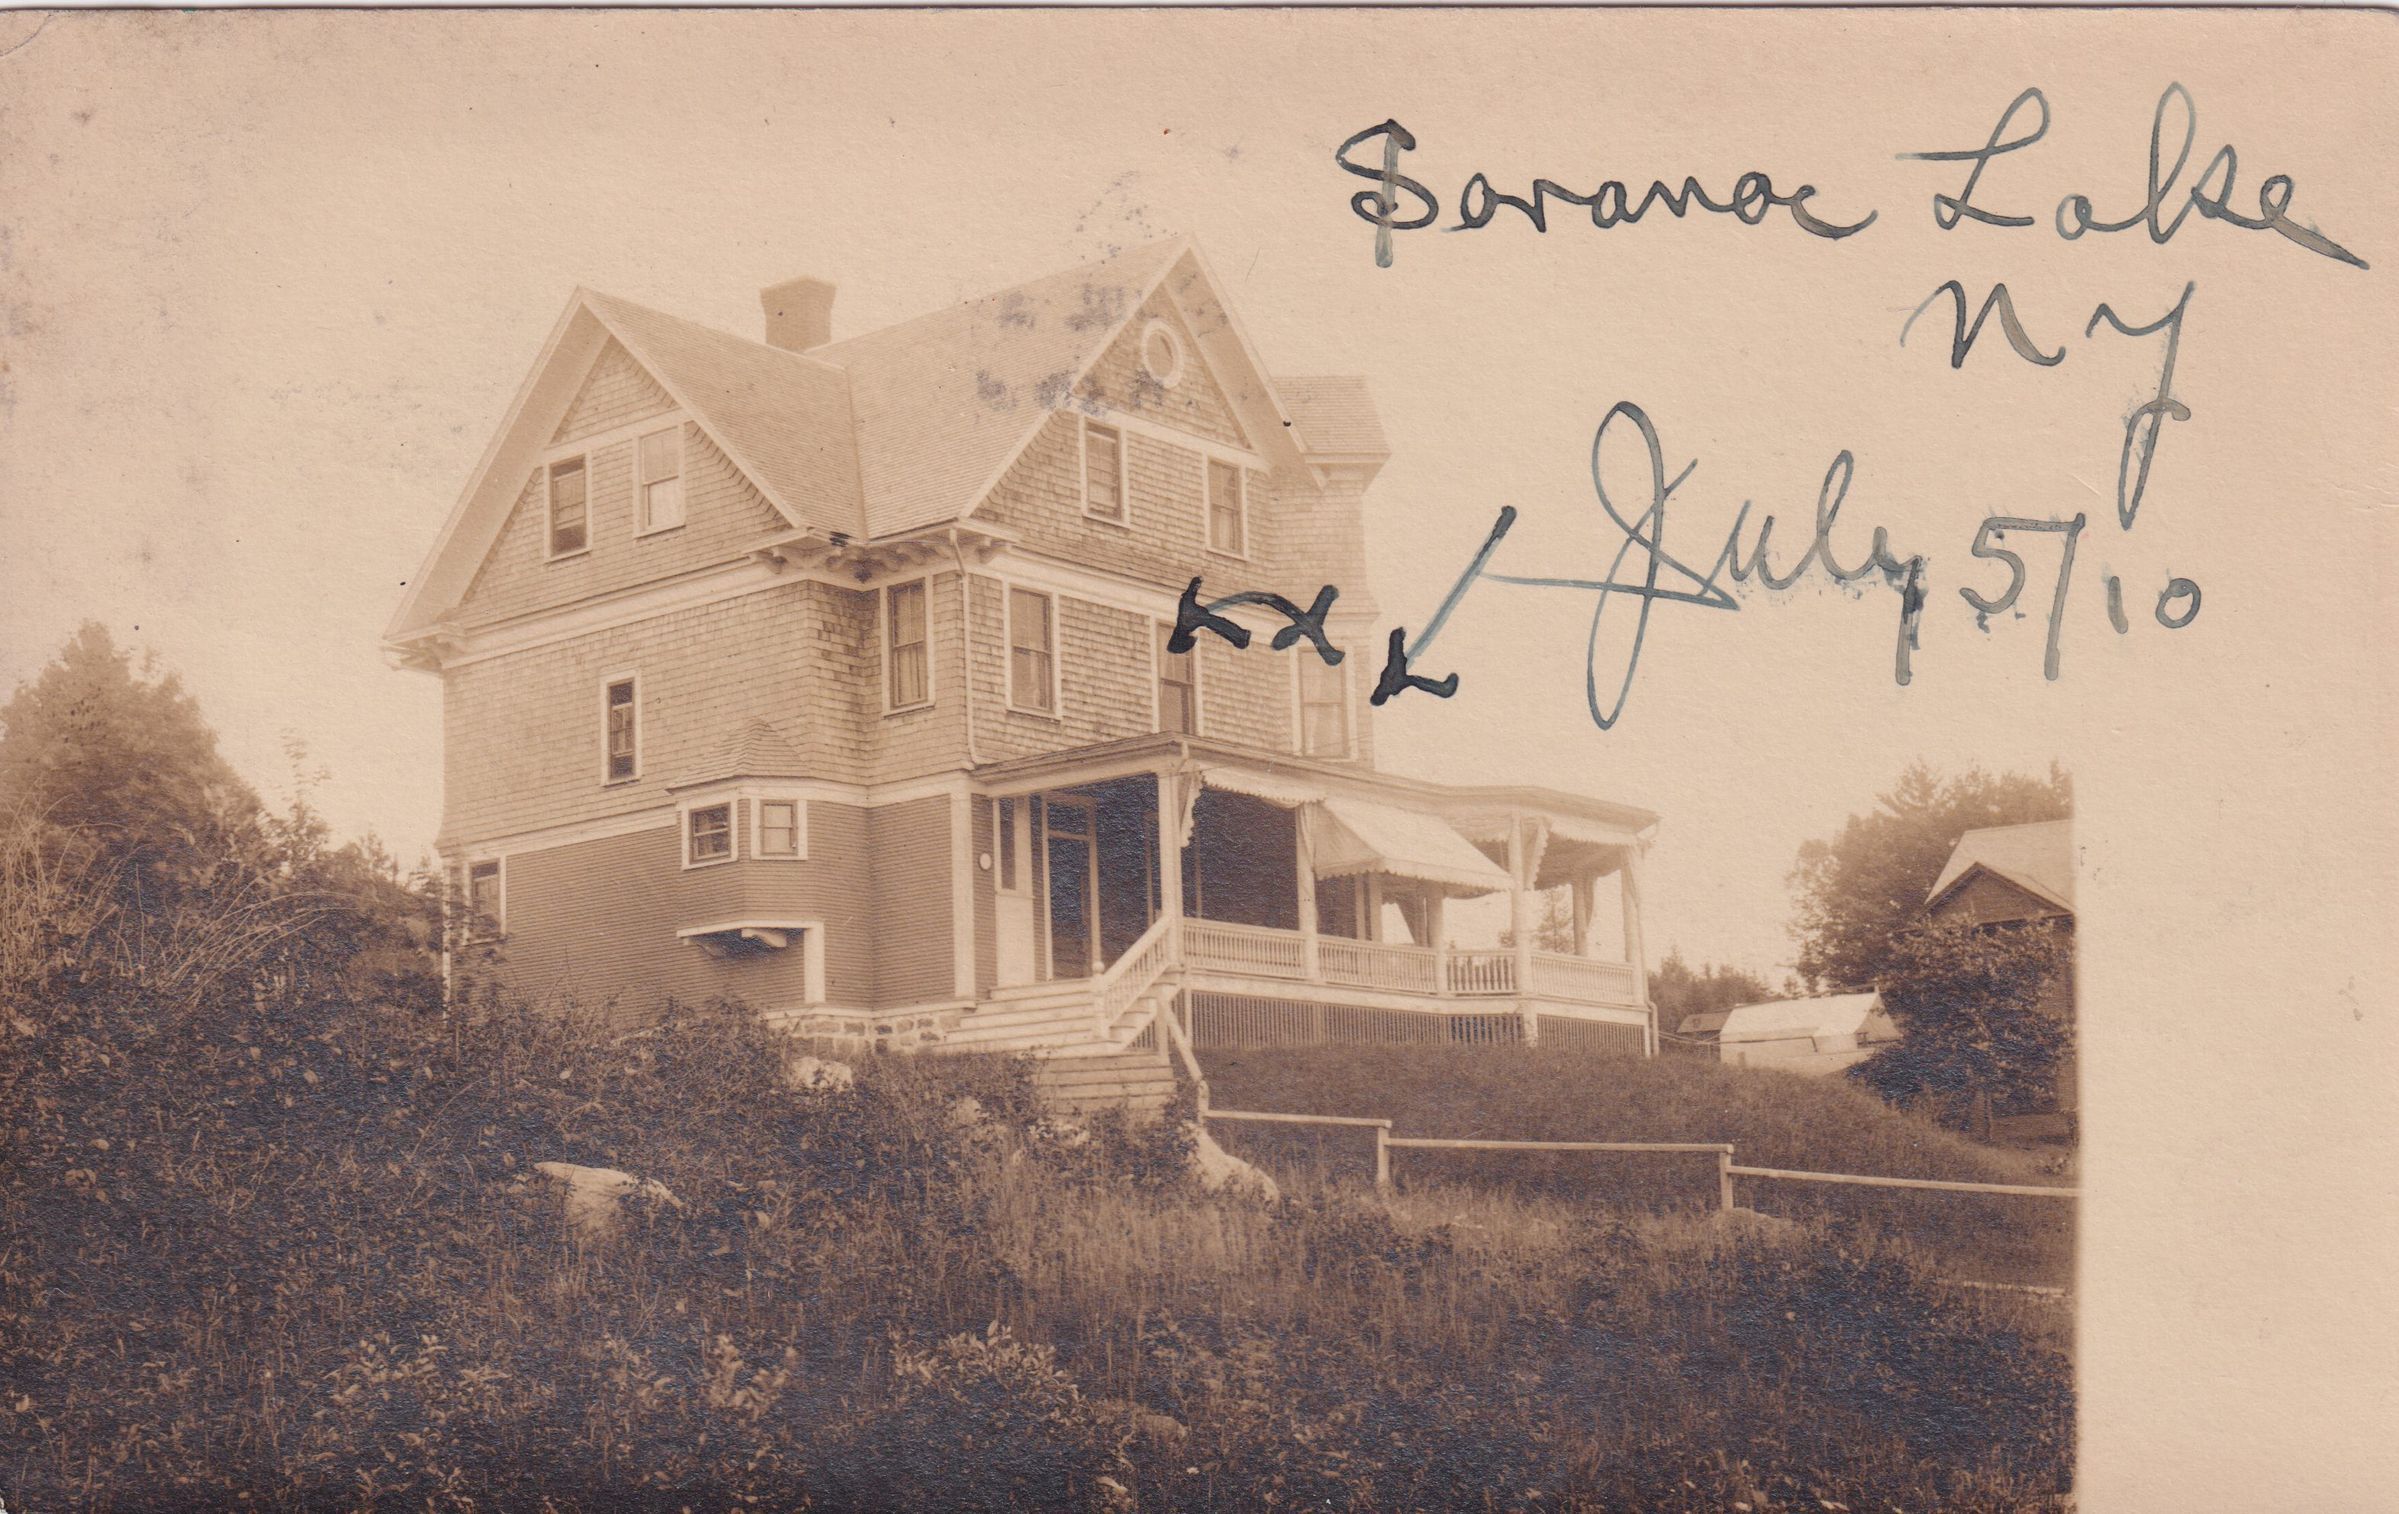 Saranac Lake
NY
July 5/10